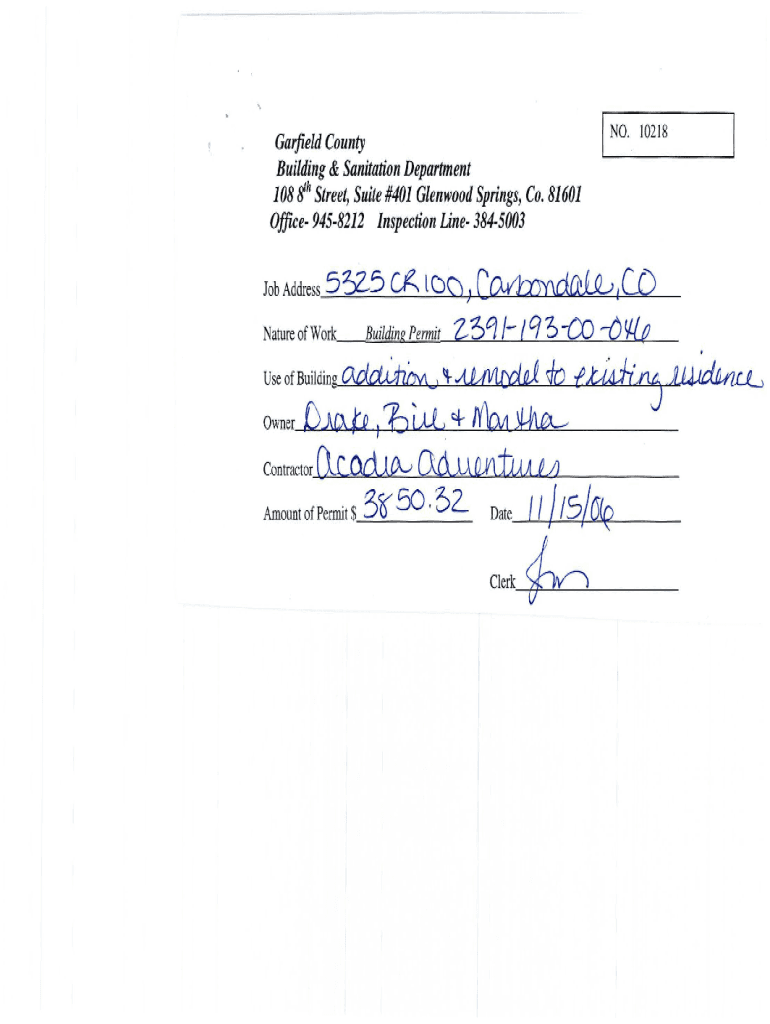 NO. 10218
Garfield County
Building & Sanitation Department
108 8th Street, Suite #401 Glenwood Springs, Co. 81601
Office- 945-8212 Inspection Line- 384-5003
Job Address 5325 CR 100, Carbondale, CO
Nature of Work Building Permit 2391-193-00-046
Use of Building addition & remodel to existing residence
Owner Drake, Bill & Martha
Contractor Acadia Adventures
Amount of Permit $ 3850.32 Date 11/15/06
Clerk